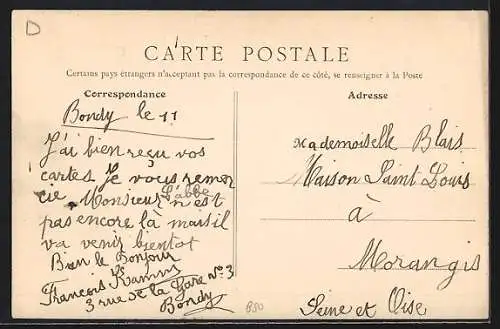 D
CARTE POSTALE
Certains pays étrangers n'acceptant pas la correspondance de ce côté, se renseigner à la Poste
Correspondance
Bondy le 11
J'ai bien reçu vos
cartes Je vous remer
cie Monsieur L'abbé n'est
pas encore là mais il
va venir bientot
Bien le Bonjour
François
3 rue de la Gare N°3
Bondy
Adresse
Mademoiselle Blais
Maison Saint Louis
à
Morangis
Seine et Oise